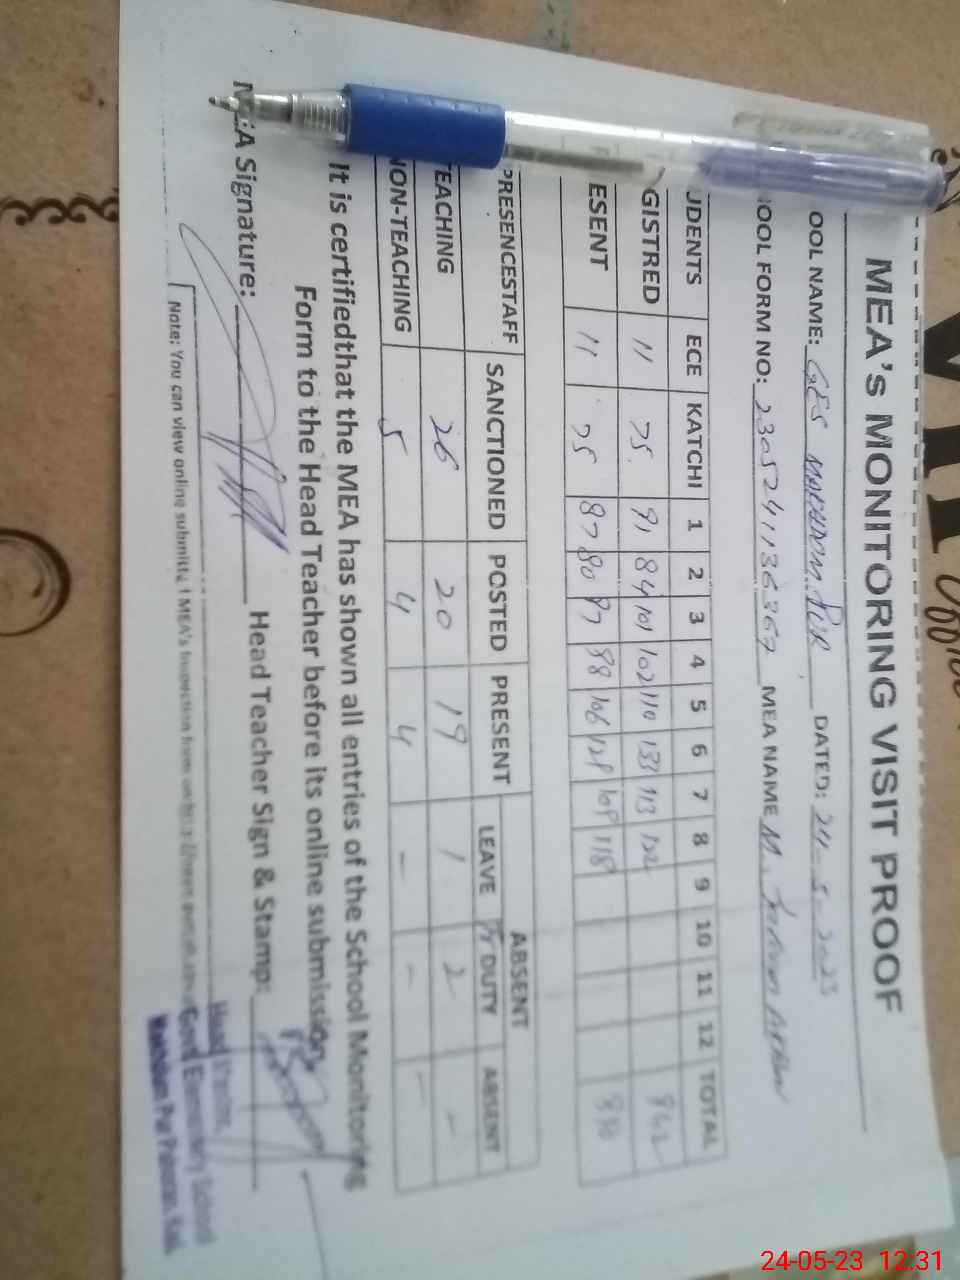 MEA's MONITORING VISIT PROOF
OOL NAME: GES MAKHDOM PUR DATED: 24-5-2023
OOL FORM NO: 230524113636 MEA NAME M.
UDENTS ECE KATCHI 1 2 3 4 5 6 7 8 9 10 11 12 TOTAL
GISTRED 11 75 91 84 101 102 110 133 113 122 942
ESENT 11 75 87 80 97 98 106 109 118
PRESENCESTAFF SANCTIONED POSTED PRESENT ABSENT
LEAVE DUTY ABSENT
TEACHING 26 20 19 1 2 -
NON-TEACHING 5 4 4 - - -
It is certifiedthat the MEA has shown all entries of the School Monitoring
Form to the Head Teacher before its online submission.
MEA Signature: Head Teacher Sign & Stamp:
Note: You can view online submitte MEA's Inspection from on
Head
Govt Elementary School
Makhdum Pur
24-05-23 12:31